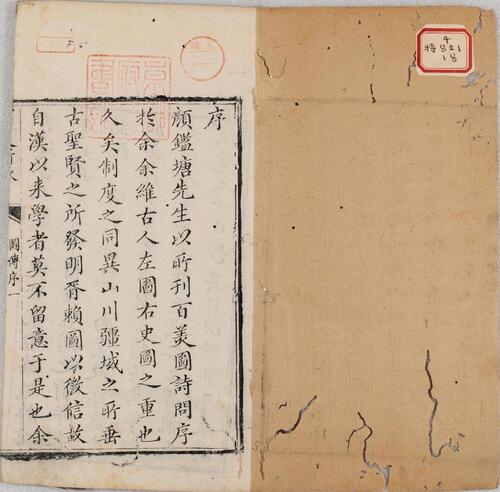 序
顔鑑塘先生以所刊百美圖詩問序
於余余維古人左圖右史圖之重也
久矣制度之同異山川疆域之所垂
古聖賢之所發明胥賴圖以徵信故
自漢以来學者莫不留意于是也余
圖傳序一
4
特821
18